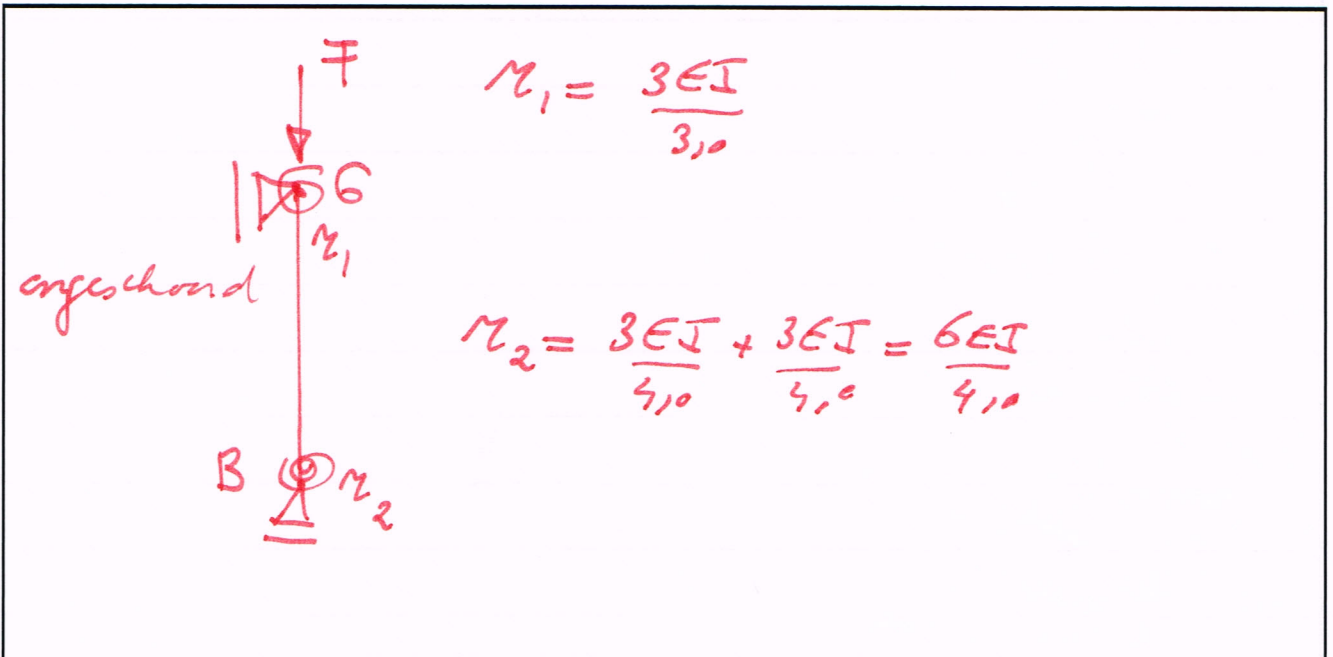 F
r₁ = 3EI/3,0
G
r₁
ongeschoord
r₂ = 3EI/4,0 + 3EI/4,0 = 6EI/4,0
B
r₂